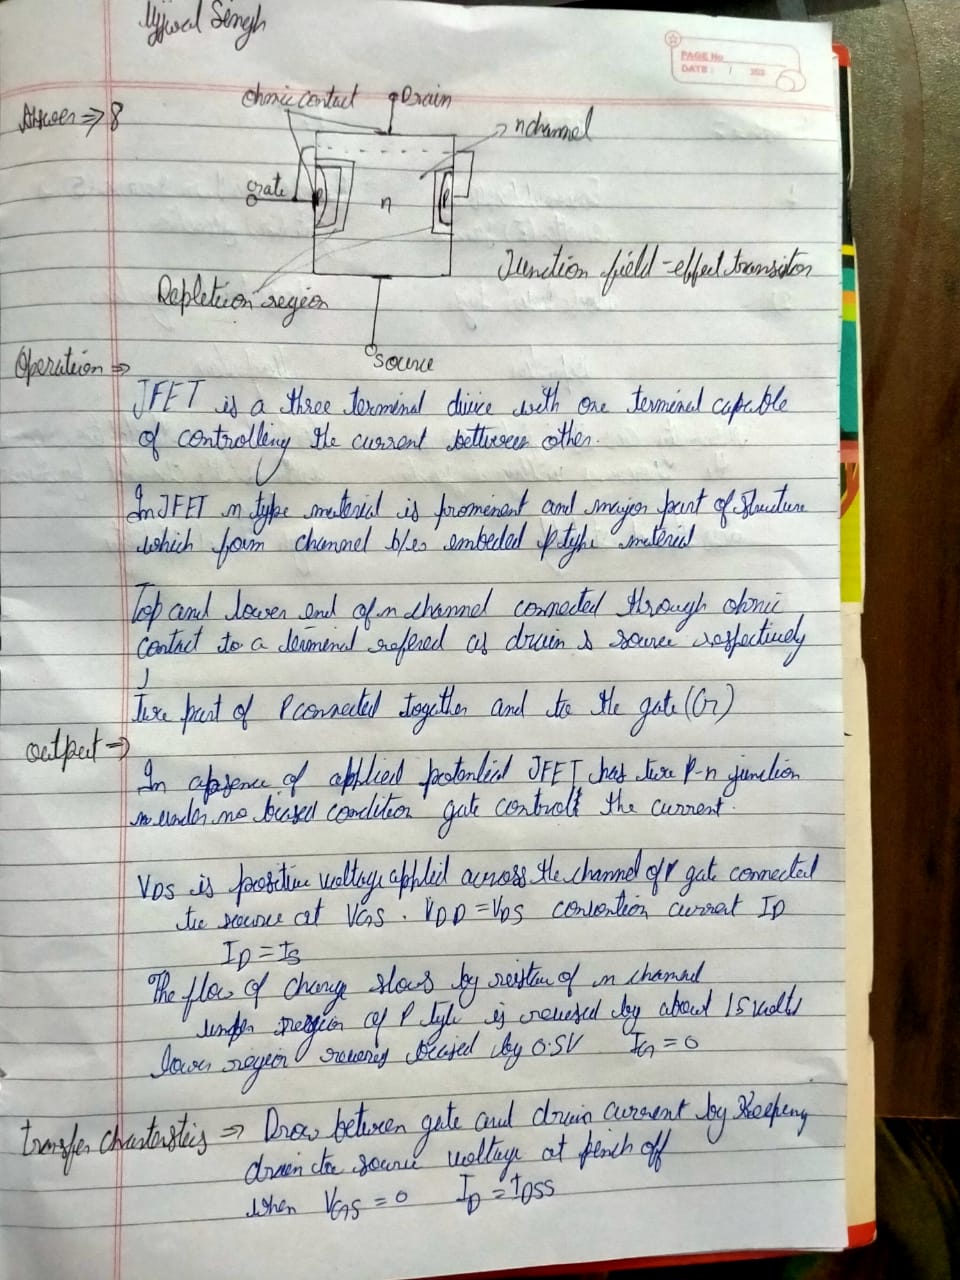 Ujjwal Singh
PAGE No
DATE: / 202
Answer ⇒ 8
ohmic contact
Drain
n channel
gate
n
Junction field-effect transitor
Depletion region
source
Operation ⇒
JFET is a three terminal divice with one terminal capable
of controlling the current between other.
In JFET n type material is prominent and major part of structure
which form channel b/w embeded p type material
Top and lower end of n channel connected through ohmic
contact to a terminal refered as drain & source respectively
Two part of P connected together and to the gate (G)
output ⇒
In absence of applied protential JFET has two P-n junction
under no biased condition gate controlls the current.
VDS is positive voltage applied across the channel of gate connected
to source at VGS. VDD = VDS convention current ID
ID = IS
The flow of charge slows by of n channel
region of P type is by about 1.5 volts
lower region biased by 0.5V IG = 0
transfer ⇒ Draw between gate and drain current by Keeping
drain to source voltage at pinch off
when VGS = 0 ID = IDSS